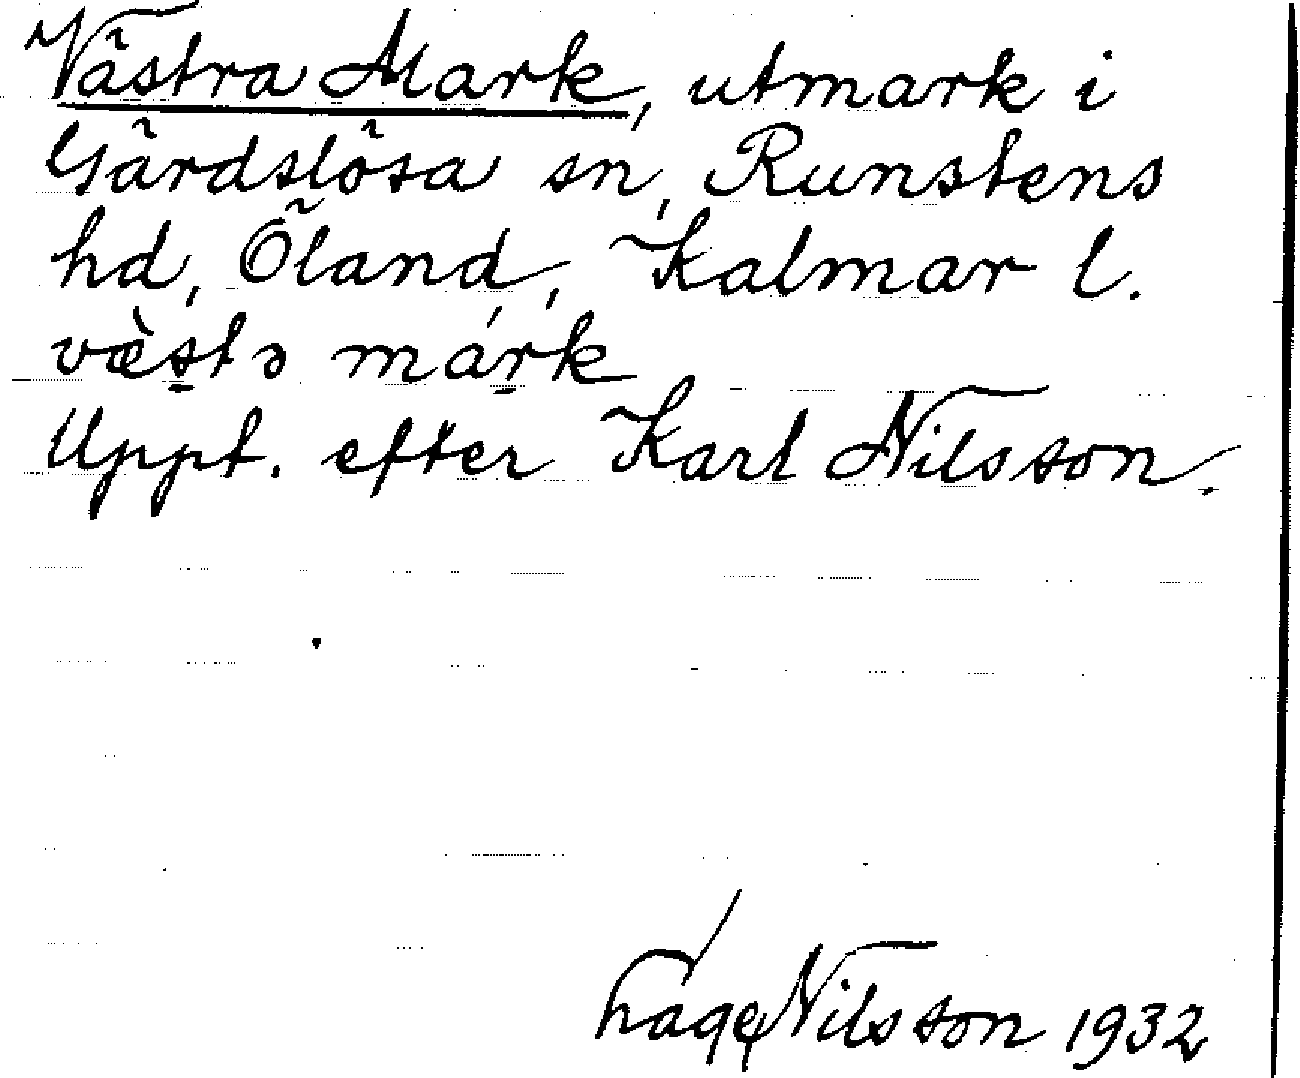 Västra Mark, utmark i
Gärdslösa sn, Runstens
hd, Öland, Kalmar l.
væ̀stə márk
Uppt. efter Karl Nilsson.
Nilsson 1932